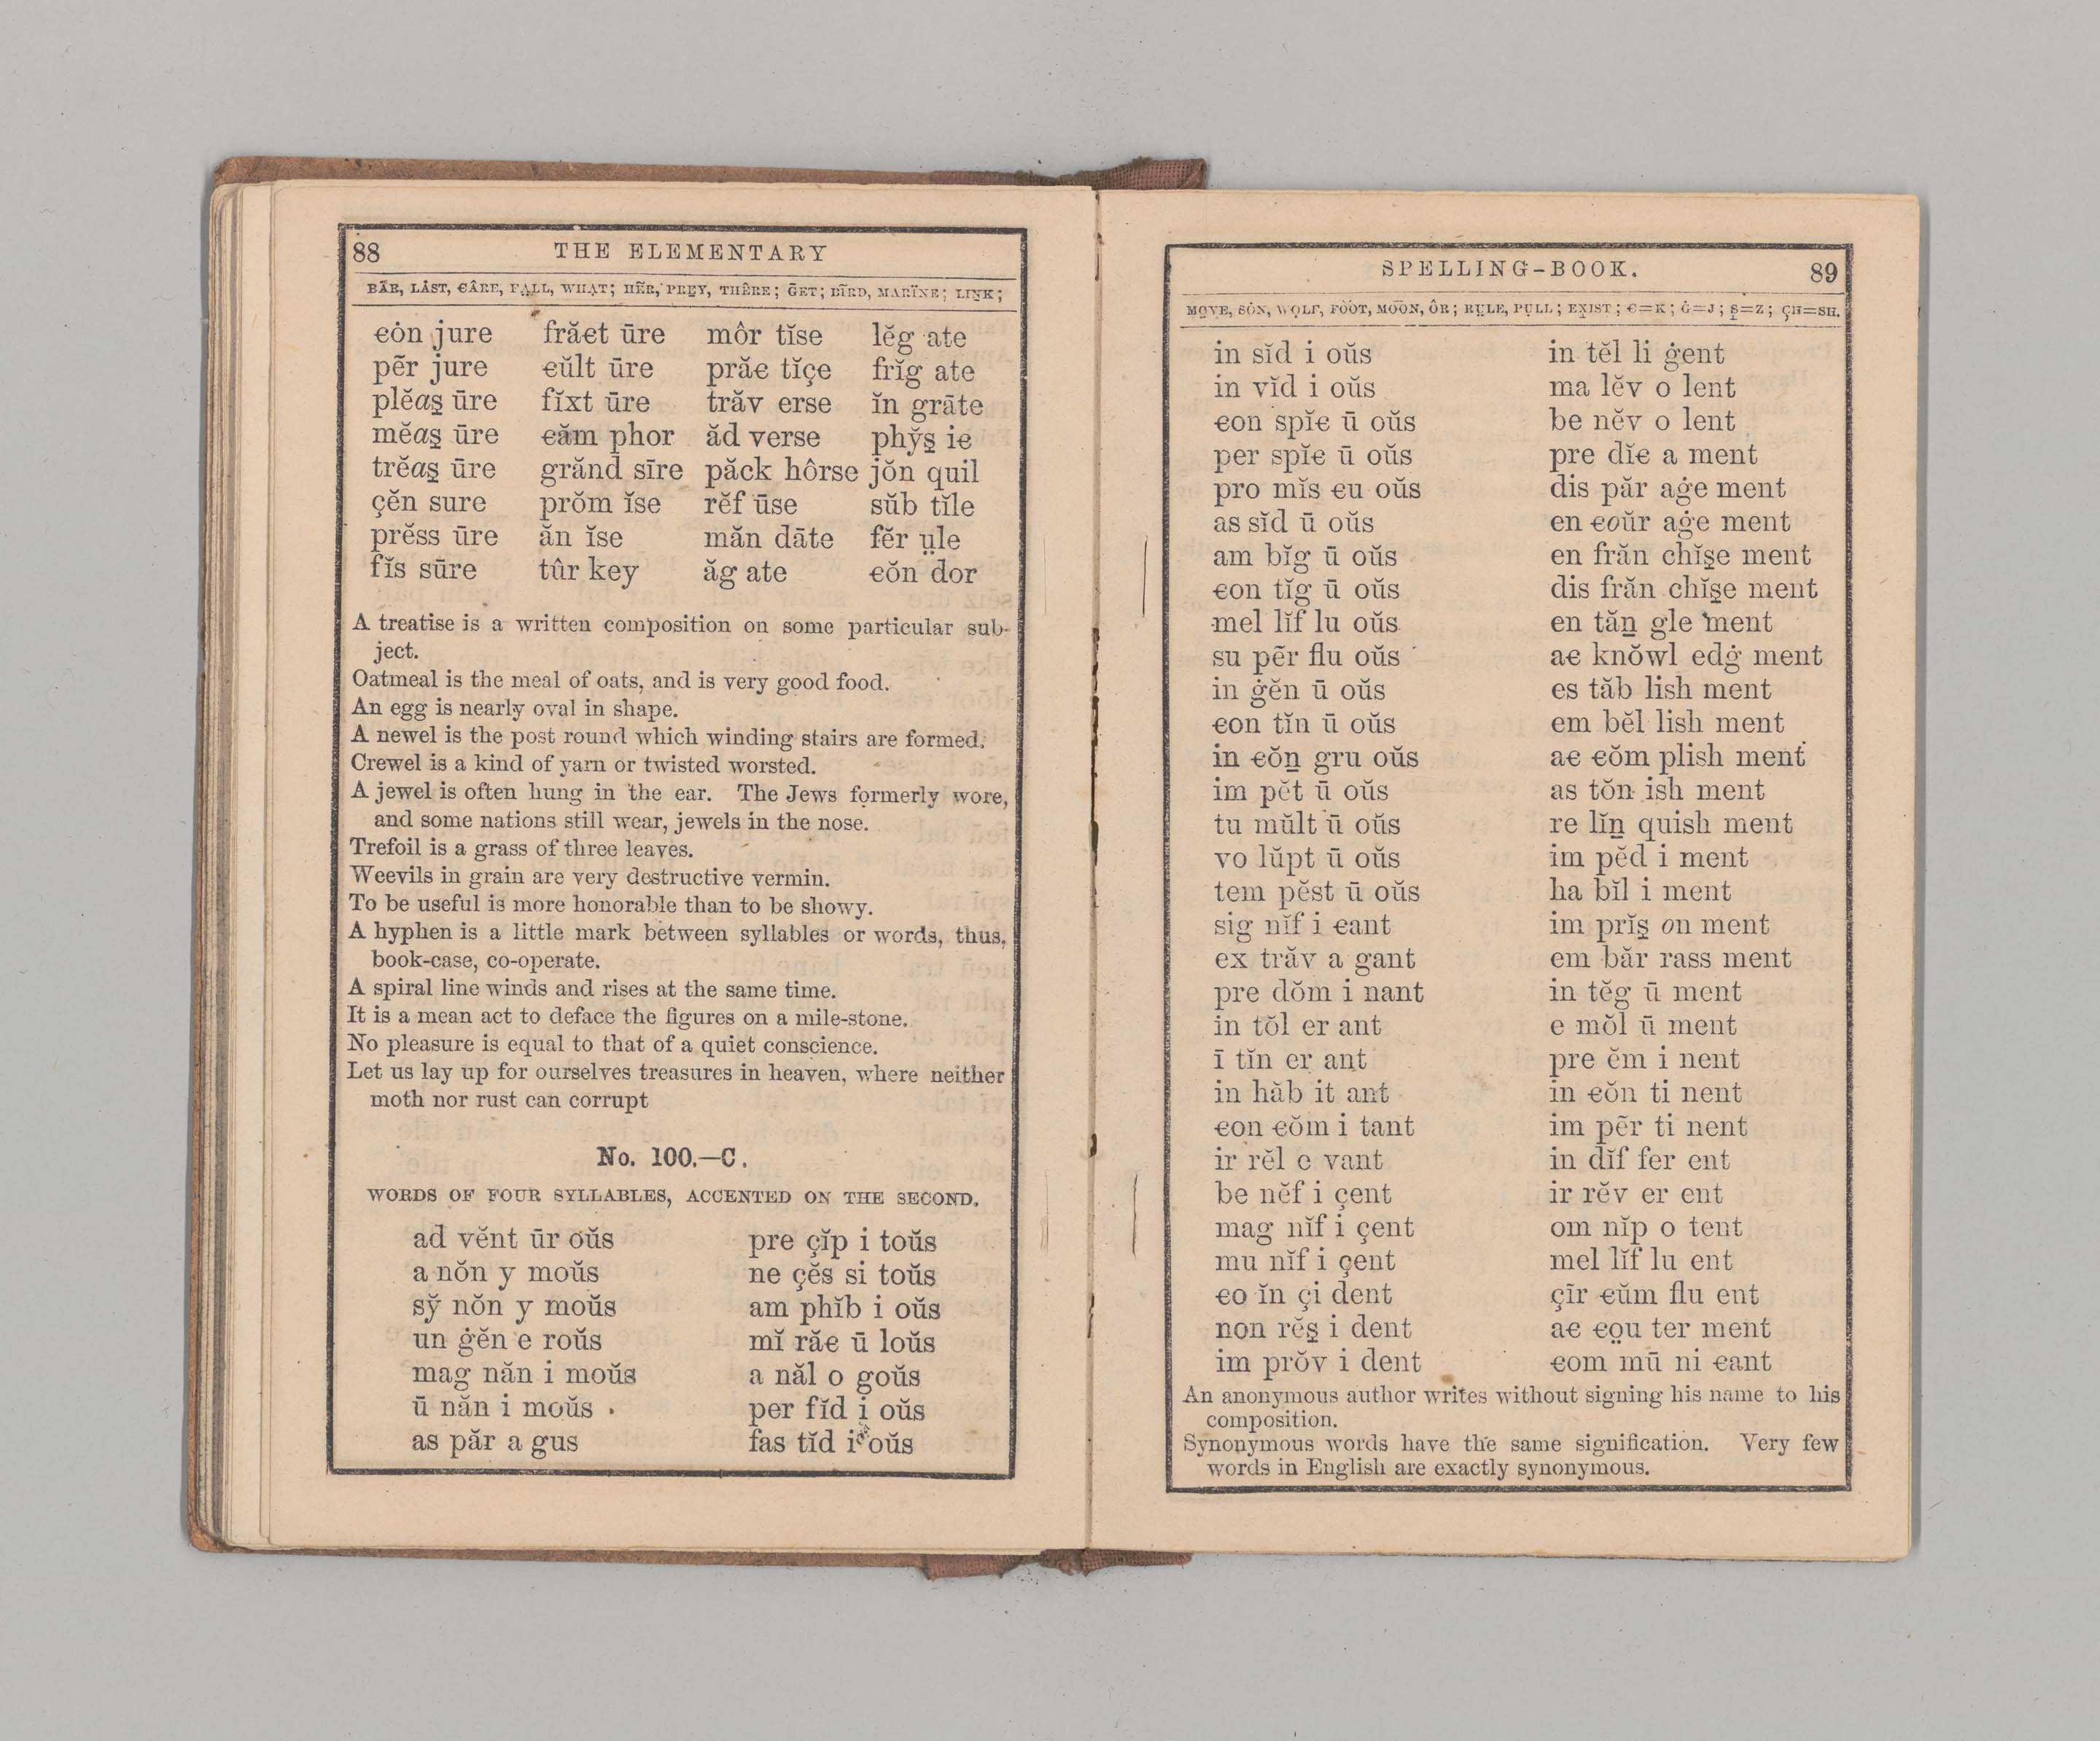 88 THE ELEMENTARY
BÄR, LȦST, ЄÂRE, FA̤LL, WHẠT; HẼR, PREY, THÊRE; ḠET; BĪRD, MARÏNE; LIṈK;
єȯn jure frăєt ūre môr tĭse lĕg ate
pẽr jure єŭlt ūre prăє tĭçe frĭg ate
plĕas̱ ūre fĭxt ūre trăv erse ĭn grāte
mĕas̱ ūre єăm phor ăd verse phy̆s̱ iє
trĕas̱ ūre grănd sīre păck hôrse jŏn quil
çĕn sure prŏm ĭse rĕf ūse sŭb tĭle
prĕss ūre ăn ĭse măn dāte fĕr ṳle
fĭs sūre tûr key ăg ate єŏn dor
A treatise is a written composition on some particular sub-
ject.
Oatmeal is the meal of oats, and is very good food.
An egg is nearly oval in shape.
A newel is the post round which winding stairs are formed.
Crewel is a kind of yarn or twisted worsted.
A jewel is often hung in the ear. The Jews formerly wore,
and some nations still wear, jewels in the nose.
Trefoil is a grass of three leaves.
Weevils in grain are very destructive vermin.
To be useful is more honorable than to be showy.
A hyphen is a little mark between syllables or words, thus,
book-case, co-operate.
A spiral line winds and rises at the same time.
It is a mean act to deface the figures on a mile-stone.
No pleasure is equal to that of a quiet conscience.
Let us lay up for ourselves treasures in heaven, where neither
moth nor rust can corrupt
No. 100.—C.
WORDS OF FOUR SYLLABLES, ACCENTED ON THE SECOND.
ad vĕnt ūr oŭs pre çĭp i toŭs
a nŏn y moŭs ne çĕs si toŭs
sy̆ nŏn y moŭs am phĭb i oŭs
un ġĕn e roŭs mĭ răє ū loŭs
mag năn i moŭs a năl o goŭs
ū năn i moŭs per fĭd i oŭs
as păr a gus fas tĭd i oŭs
SPELLING-BOOK. 89
MO̤VE, SȮN, WỌLF, FO͝OT, MO͞ON, ÔR; RṲLE, PỤLL; EX̱IST; Є=K; Ġ=J; S̱=Z; ÇH=SH.
in sĭd i oŭs in tĕl li ġent
in vĭd i oŭs ma lĕv o lent
єon spĭє ū oŭs be nĕv o lent
per spĭє ū oŭs pre dĭє a ment
pro mĭs єu oŭs dis păr aġe ment
as sĭd ū oŭs en єoŭr aġe ment
am bĭg ū oŭs en frăn chĭs̱e ment
єon tĭg ū oŭs dis frăn chĭs̱e ment
mel lĭf lu oŭs en tăṉ gle ment
su pẽr flu oŭs aє knŏwl edġ ment
in ġĕn ū oŭs es tăb lish ment
єon tĭn ū oŭs em bĕl lish ment
in єŏṉ gru oŭs aє єŏm plish ment
im pĕt ū oŭs as tŏn ish ment
tu mŭlt ū oŭs re lĭṉ quish ment
vo lŭpt ū oŭs im pĕd i ment
tem pĕst ū oŭs ha bĭl i ment
sig nĭf i єant im prĭs̱ on ment
ex trăv a gant em băr rass ment
pre dŏm i nant in tĕg ū ment
in tŏl er ant e mŏl ū ment
ī tĭn er ant pre ĕm i nent
in hăb it ant in єŏn ti nent
єon єŏm i tant im pẽr ti nent
ir rĕl e vant in dĭf fer ent
be nĕf i çent ir rĕv er ent
mag nĭf i çent om nĭp o tent
mu nĭf i çent mel lĭf lu ent
єo ĭn çi dent çīr єŭm flu ent
non rĕs̱ i dent aє єo̤u ter ment
im prŏv i dent єom mū ni єant
An anonymous author writes without signing his name to his
composition.
Synonymous words have the same signification. Very few
words in English are exactly synonymous.